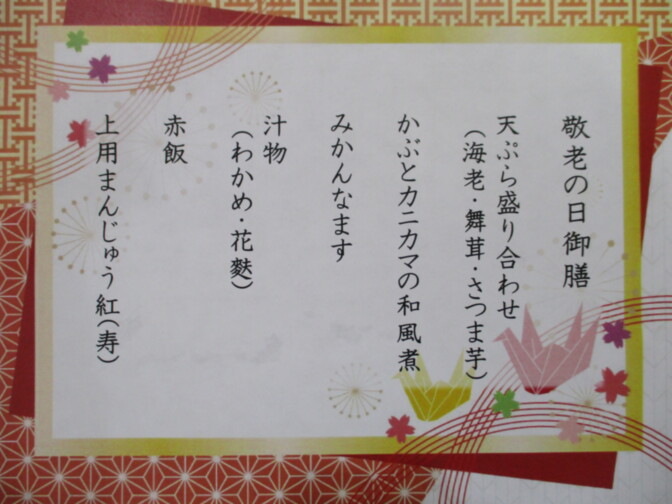 敬老の日御膳
天ぷら盛り合わせ
（海老・舞茸・さつま芋）
かぶとカニカマの和風煮
みかんなます
汁物
（わかめ・花麩）
赤飯
上用まんじゅう紅（寿）